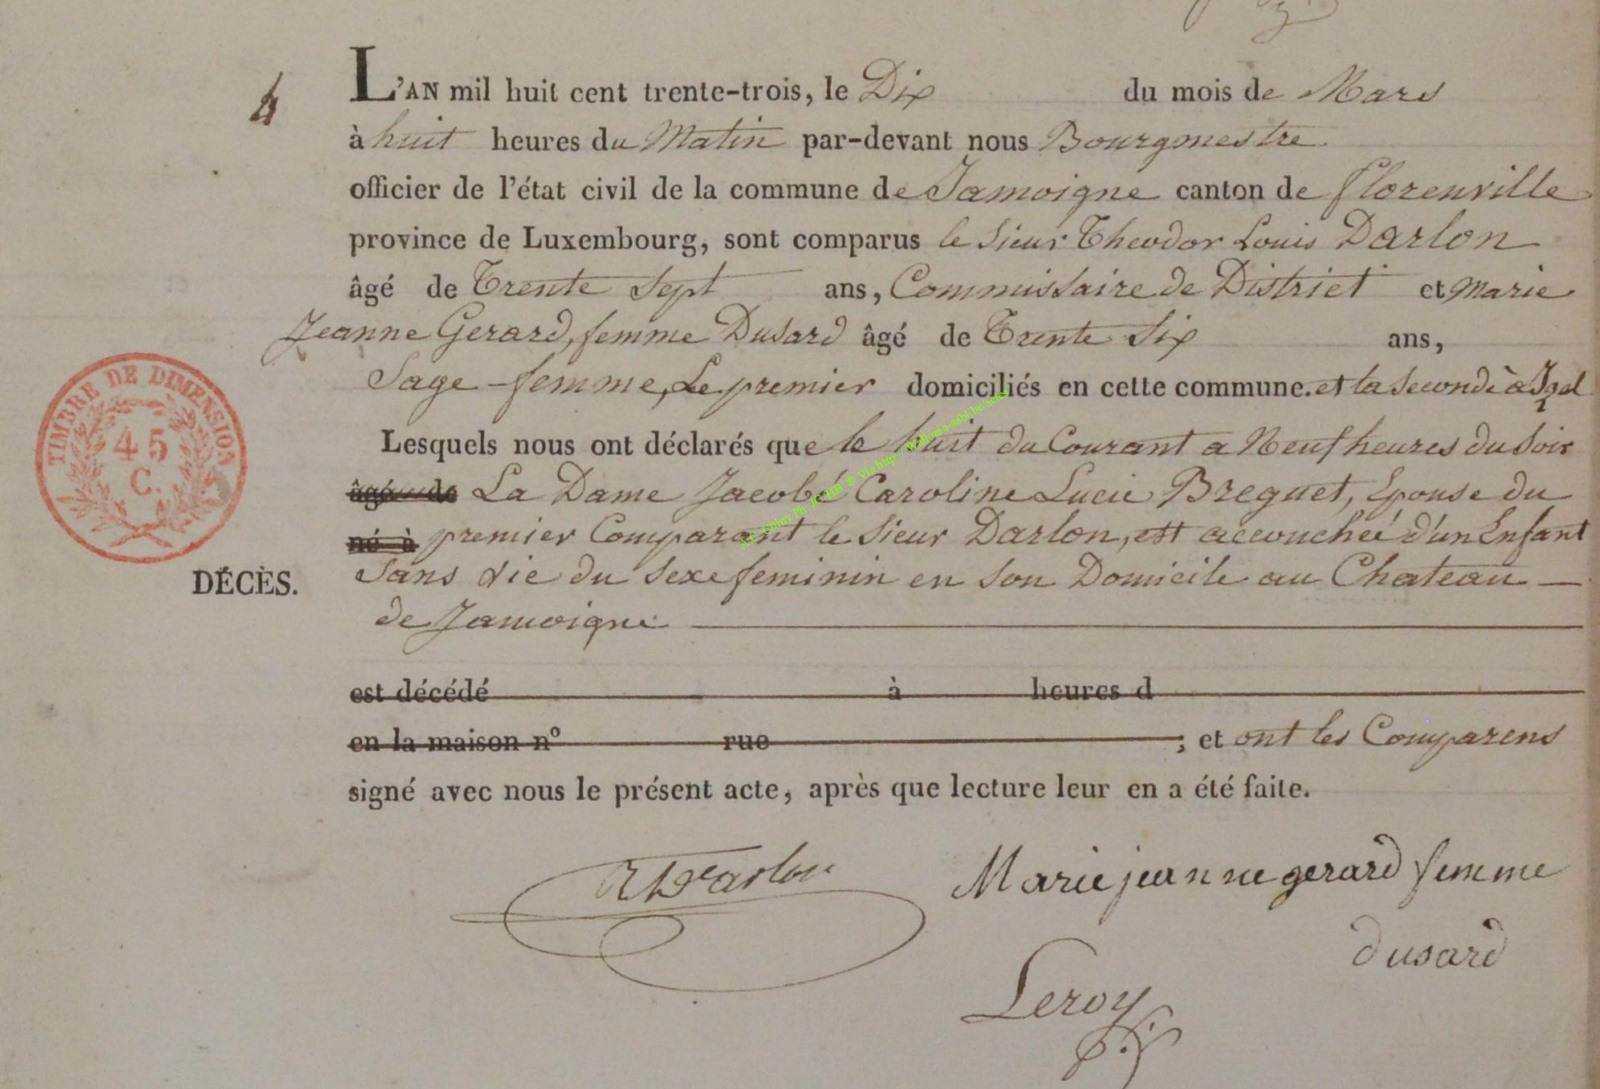 4
L'AN mil huit cent trente-trois, le Dix du mois de Mars
à huit heures du Matin par-devant nous Bourgmestre
officier de l'état civil de la commune de Jamoigne canton de florenville
province de Luxembourg, sont comparus le Sieur Theodor Louis Darlon
âgé de Trente Sept ans, Commissaire de District et Marie
Jeanne Gerard, femme Dusard âgé de Trente Six ans,
Sage-femme, Le premier domiciliés en cette commune. et la Seconde à Izel
Lesquels nous ont déclarés que le huit du Courant a Neuf heures du Soir
âgé de La Dame Jacobé Caroline Lucie Breguet, Epouse du
né à premier Comparant le Sieur Darlon, est accouchée d'un Enfant
Sans vie du Sexe feminin en Son Domicile au Chateau
de Jamoigne
est décédé à heures d
en la maison n° rue ; et ont les Comparens
signé avec nous le présent acte, après que lecture leur en a été faite.
TIMBRE DE DIMENSION
45
C.
DÉCÈS.
Darlon
Marie jeanne gerard femme
dusard
Leroy